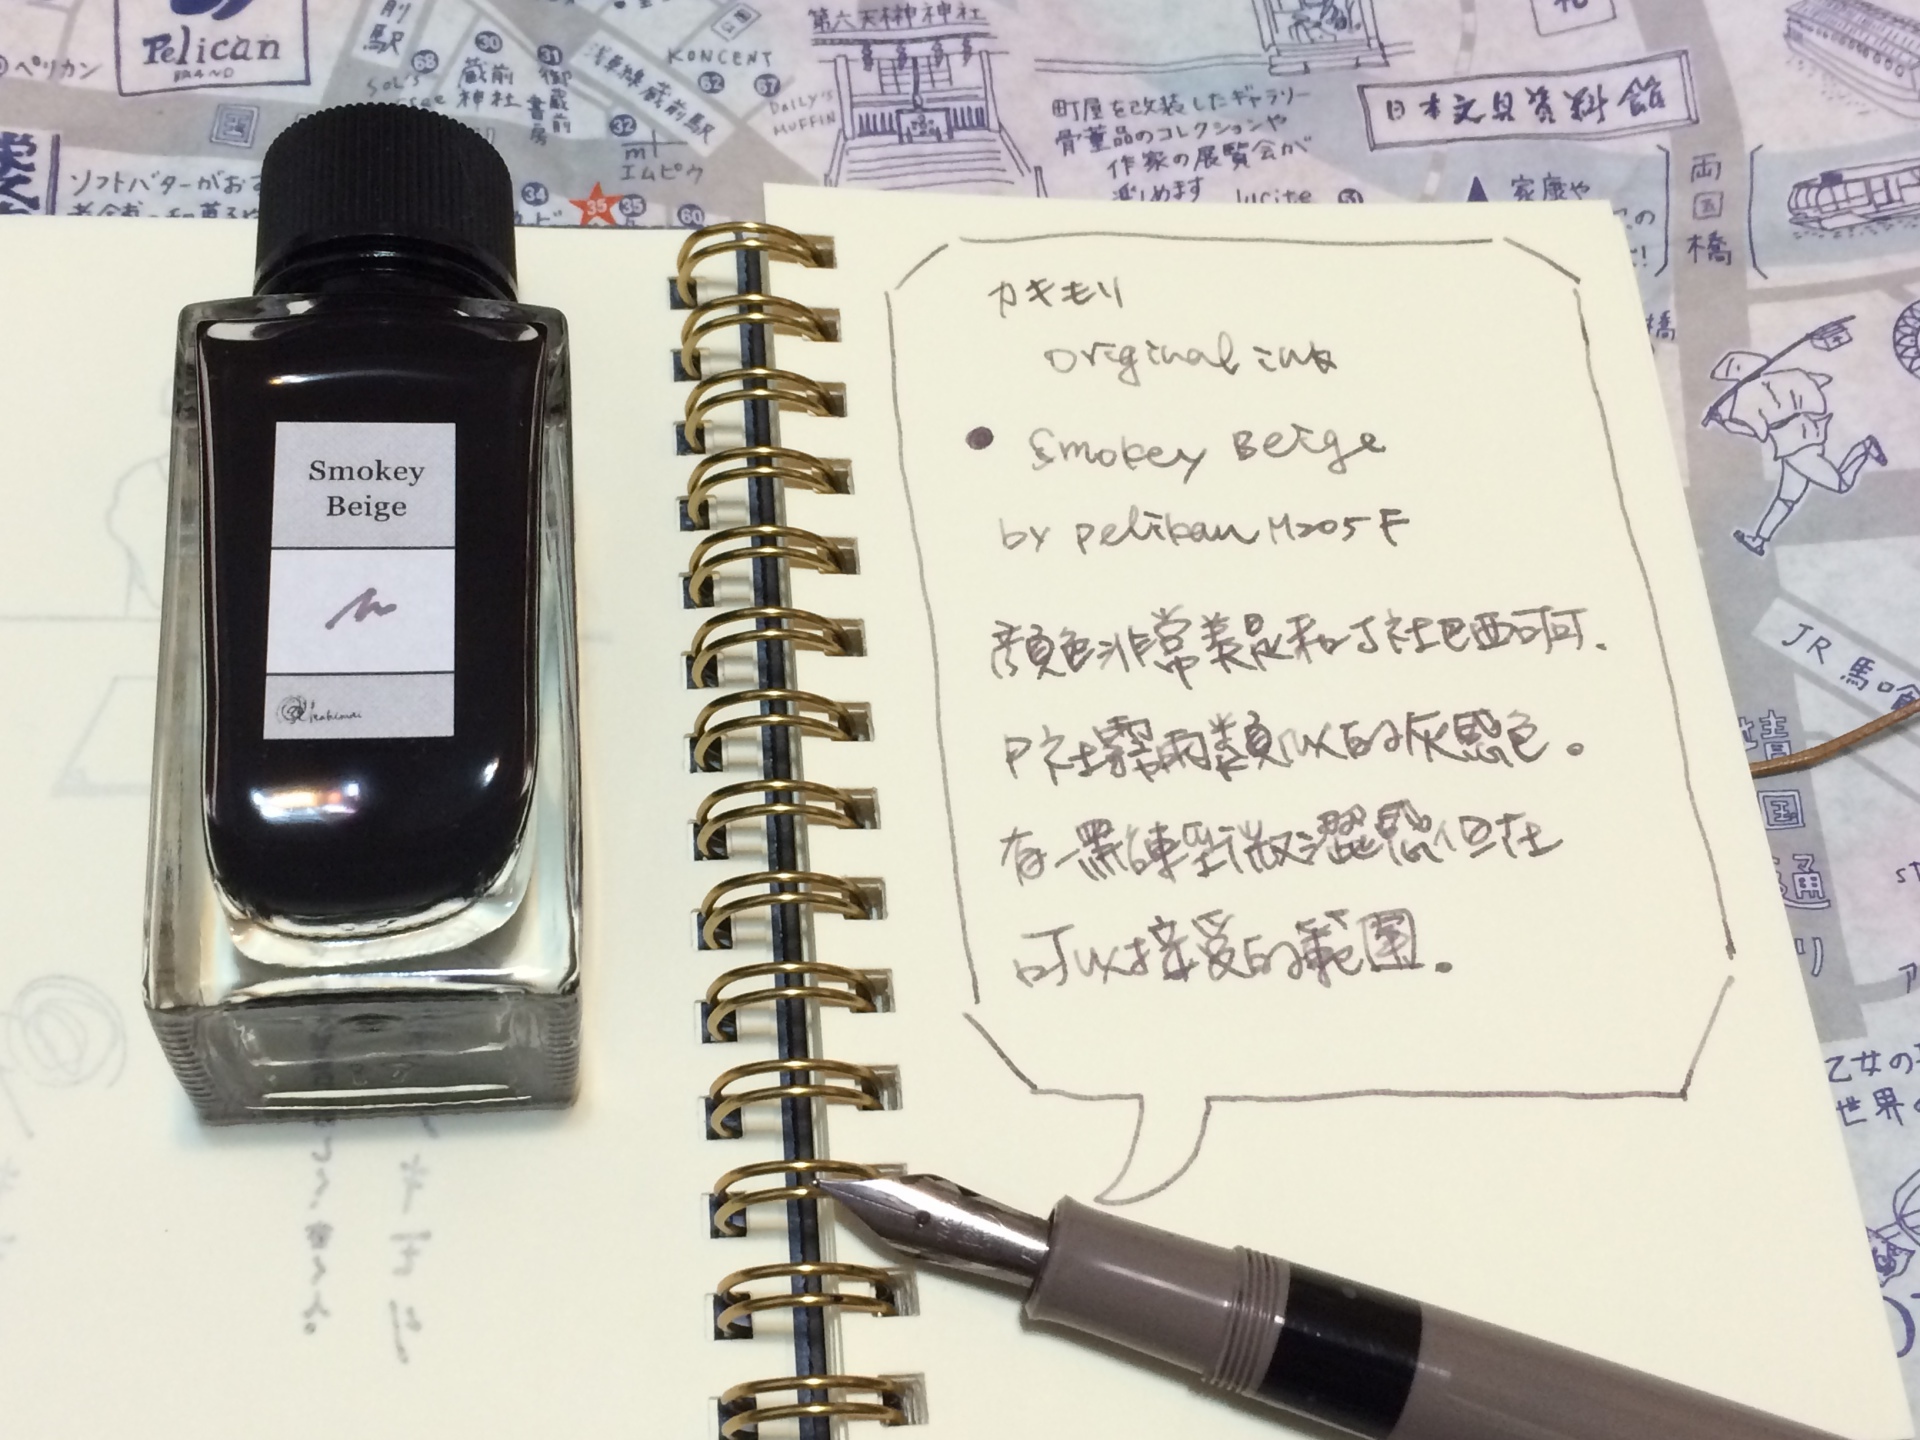 Pelican
BRAND
ペリカン
前
駅
68
30
蔵前
神社
31
御蔵前
書房
浅草線 蔵前駅
KONCENT
62
67
DAILY'S
MUFFIN
32
エムピウ
34
35
35
60
ソフトバターがおす
第六天榊神社
町屋を改装したギャラリー
骨董品のコレクションや
作家の展覧会が
楽しめます
lucite
51
日本文具資料館
家康や
両国橋
橋
JR 馬喰
乙女の
世界
Smokey
Beige
カキモリ
original ink
Smokey Beige
by pelikan M205 F
顏色非常美是和J社巴西可可、
P社霧雨類似的灰階色。
有一點練墨微澀感但在
可以接受的範圍。